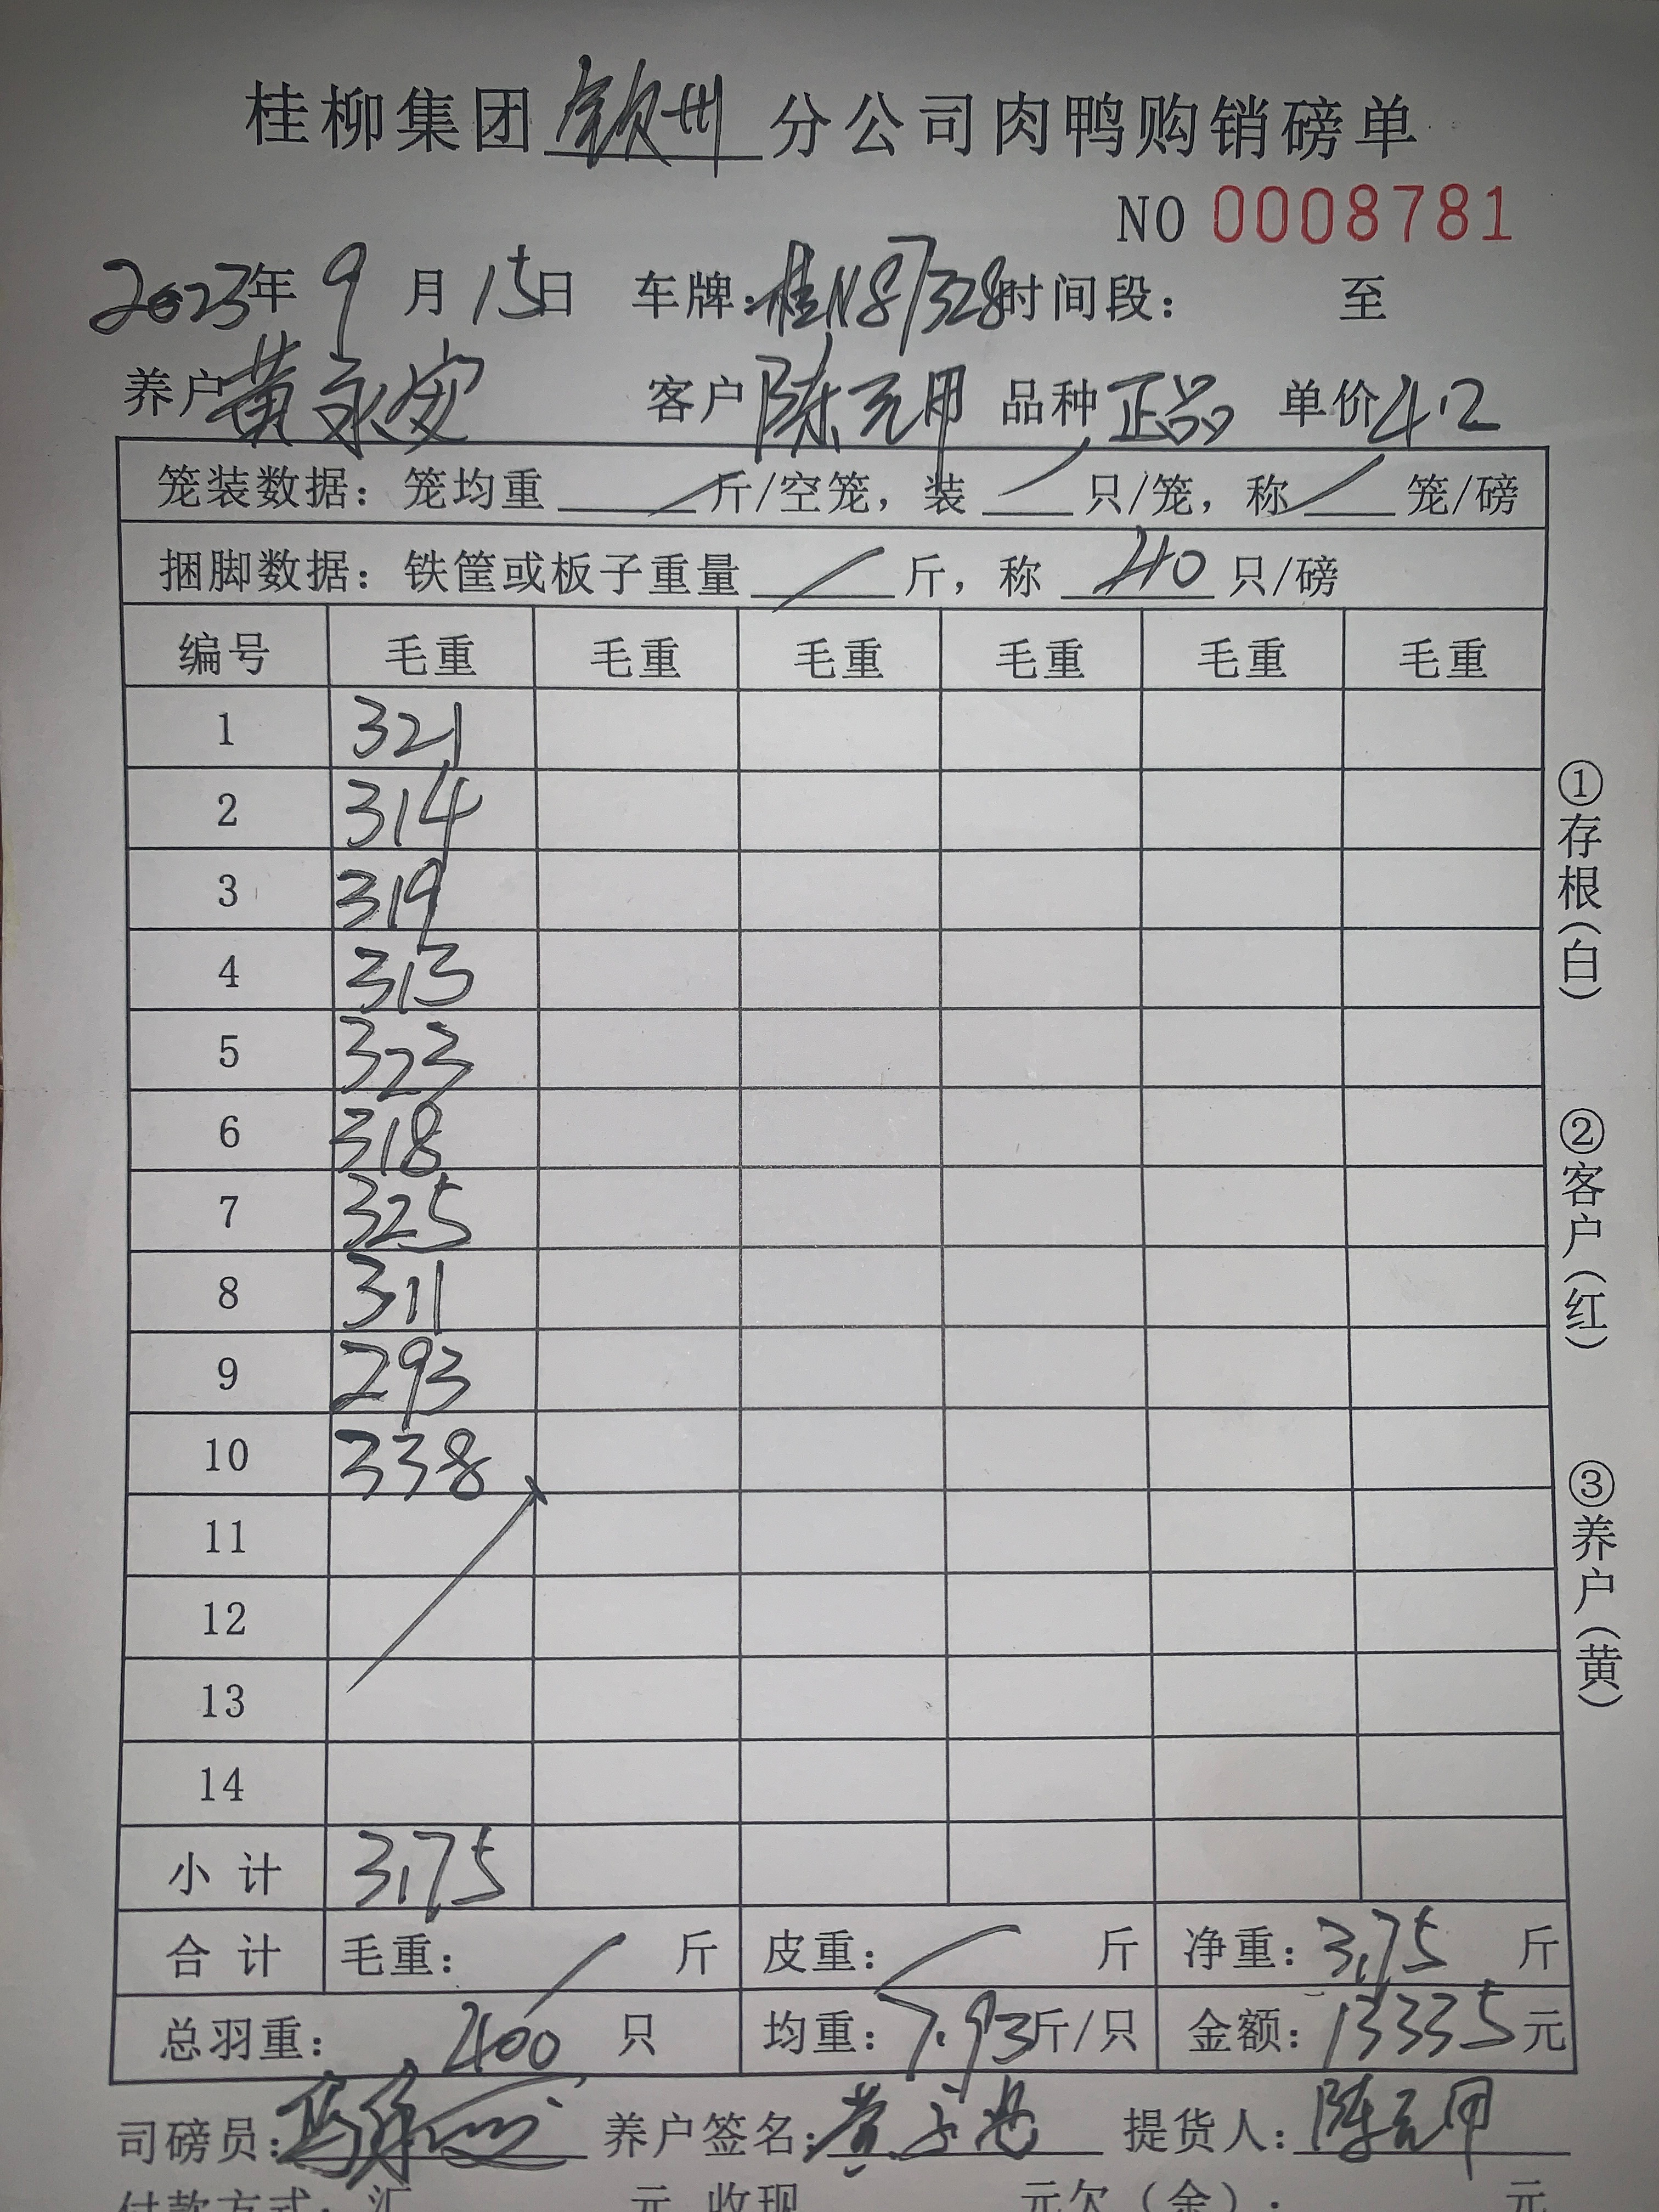 桂柳集团钦州分公司肉鸭购销磅单
NO 0008781
2023年 9 月 15日 车牌:桂N87328时间段: 至
养户黄永安 客户陈元甲 品种正品 单价4.2
笼装数据: 笼均重 斤/空笼, 装 只/笼, 称 笼/磅
捆脚数据: 铁筐或板子重量 斤, 称 40 只/磅
编号 毛重 毛重 毛重 毛重 毛重 毛重
1 321
2 314
3 319
4 313
5 323
6 318
7 325
8 311
9 293
10 338
11
12
13
14
小 计 3175
合 计 毛重: 斤 皮重: 斤 净重: 3175 斤
总羽重: 400 只 均重: 7.93斤/只 金额: 13335元
司磅员: 养户签名: 提货人: 陈元甲
付款方式: 汇 元 收现 元欠(金): 元
①存根(白)
②客户(红)
③养户(黄)